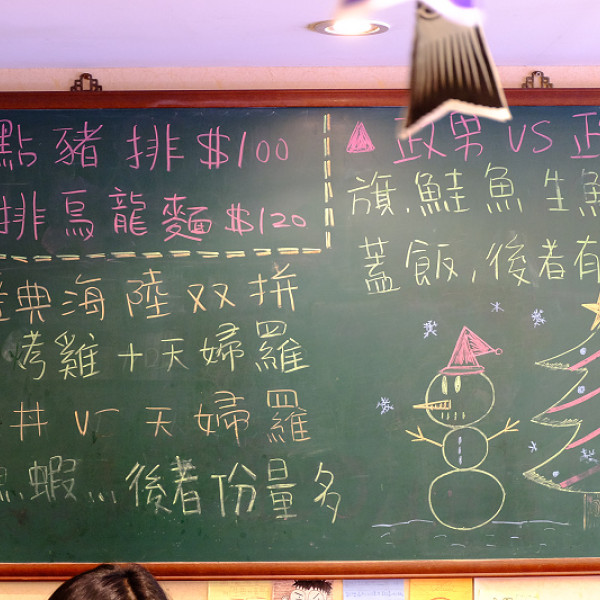 點豬排$100
排烏龍麵$120
典海陸双拼
烤雞+天婦羅
丼 vs 天婦羅
蝦...後者份量多
政男 VS 政
旗.鮭魚生魚
蓋飯,後者有